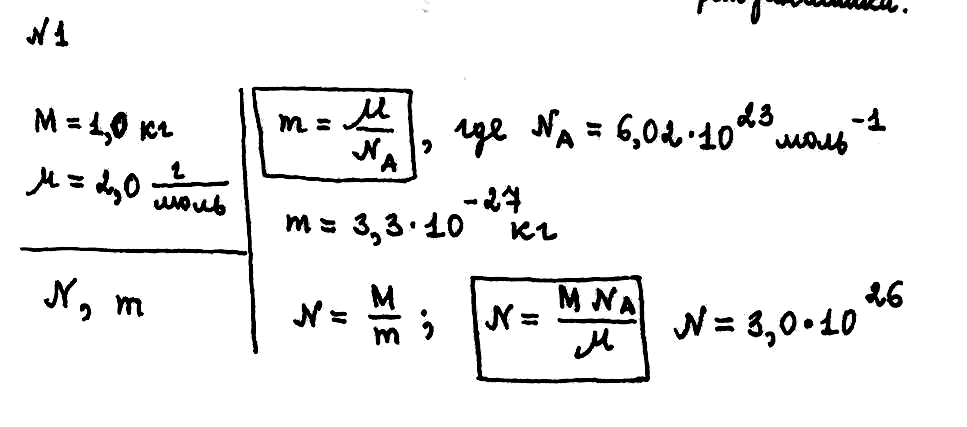 №1
M = 1,0 кг
μ = 2,0 г/моль
N, m
m = μ/N_A, где N_A = 6,02·10^23 моль^-1
m = 3,3·10^-27 кг
N = M/m; N = M N_A/μ N = 3,0·10^26